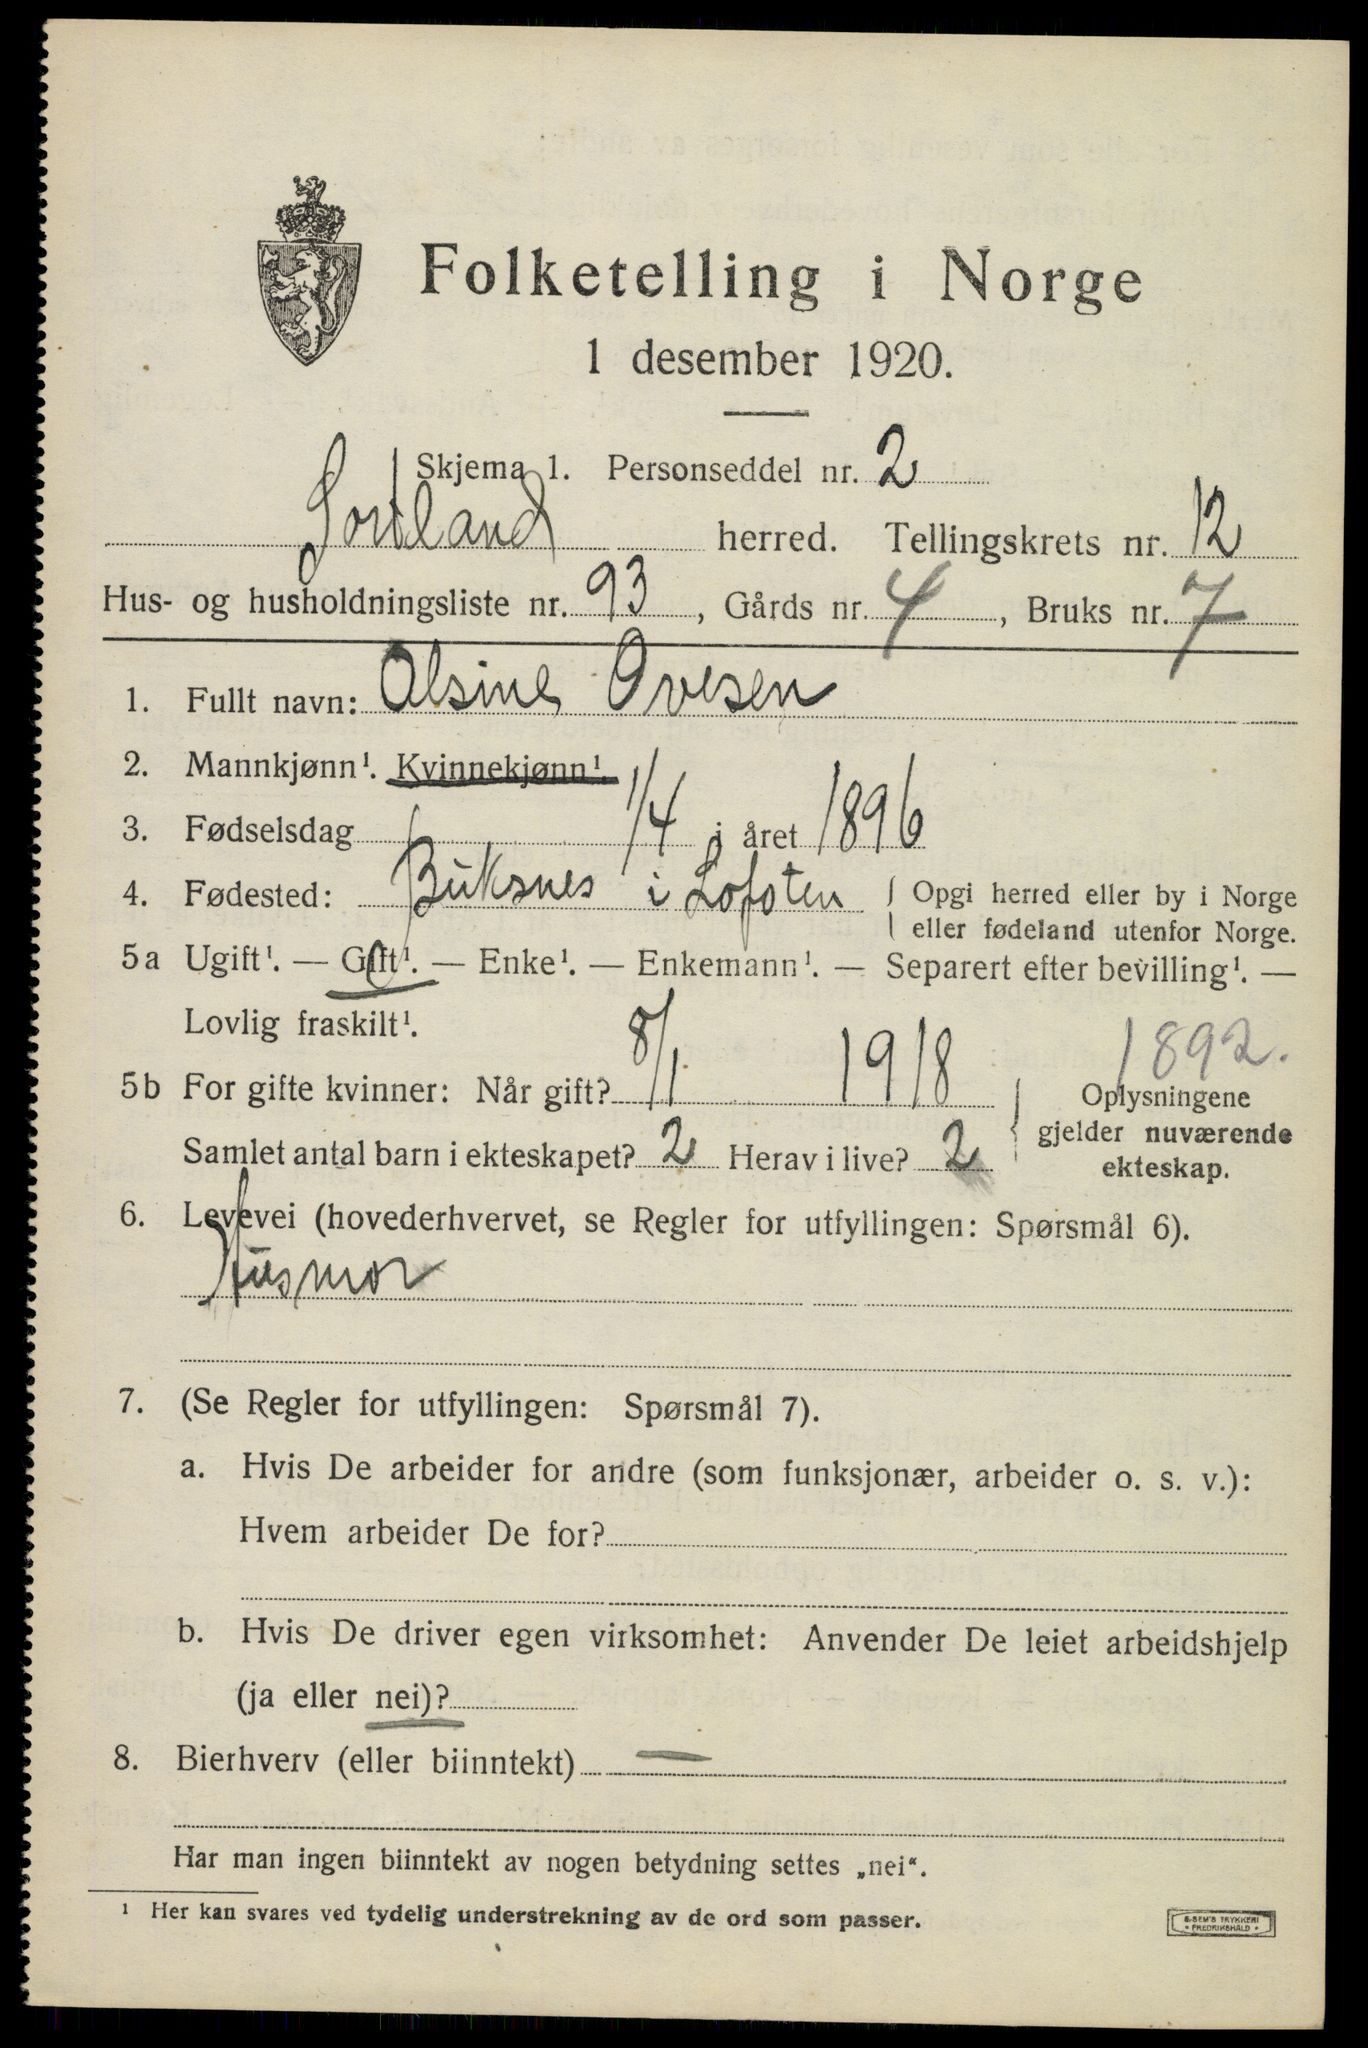 Folketelling i Norge
1 desember 1920.
Skjema 1. Personseddel nr. 2
Sortland herred. Tellingskrets nr. 12
Hus- og husholdningsliste nr. 93, Gårds nr. 4, Bruks nr. 7
1. Fullt navn: Olsine Ovesen
2. Mannkjønn¹. Kvinnekjønn¹.
3. Fødselsdag 1/4 i året 1896
4. Fødested: Buksnes i Lofoten Opgi herred eller by i Norge
eller fødeland utenfor Norge.
5a Ugift¹. — Gift¹. — Enke¹. — Enkemann¹. — Separert efter bevilling¹. —
Lovlig fraskilt¹.
1892.
5b For gifte kvinner: Når gift? 8/1 1918 Oplysningene
gjelder nuværende
Samlet antal barn i ekteskapet? 2 Herav i live? 2 ekteskap.
6. Levevei (hovederhvervet, se Regler for utfyllingen: Spørsmål 6).
Husmor
7. (Se Regler for utfyllingen: Spørsmål 7).
a. Hvis De arbeider for andre (som funksjonær, arbeider o. s. v.):
Hvem arbeider De for?
b. Hvis De driver egen virksomhet: Anvender De leiet arbeidshjelp
(ja eller nei)?
8. Bierhverv (eller biinntekt) —
Har man ingen biinntekt av nogen betydning settes „nei“.
¹ Her kan svares ved tydelig understrekning av de ord som passer.
E. SEM'S TRYKKERI
• FREDRIKSHALD •